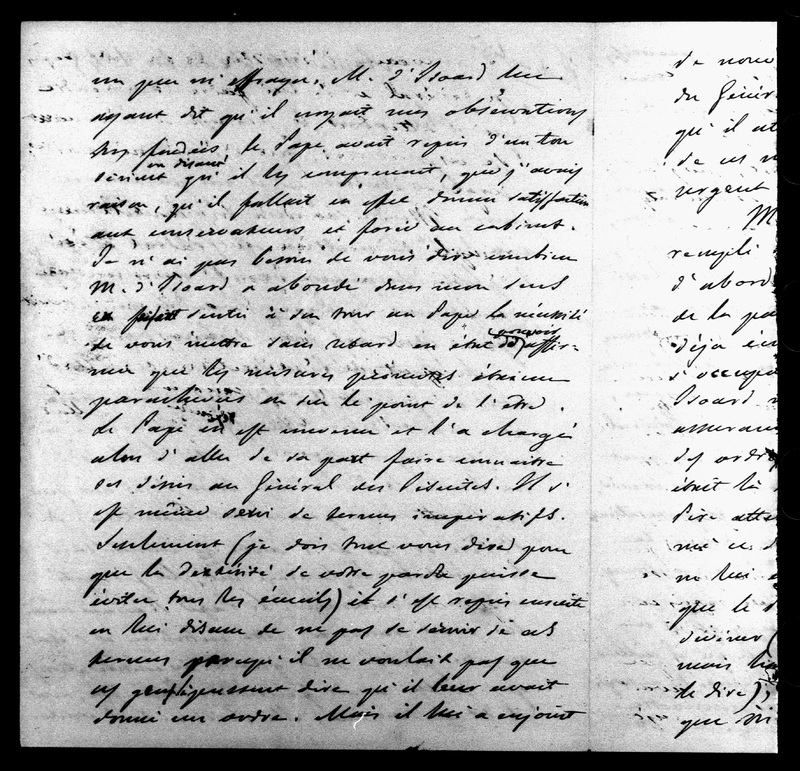 un peu m'effrayer. M. d'Isoard lui
ayant dit qu'il croyait mes observations
très fondées, le Pape avait repris d'un ton
sérieux en disant qu'il les comprenait, que j'avais
raison, qu'il fallait en effet donner satisfaction
aux conservateurs et force au cabinet.
Je n'ai pas besoin de vous dire combien
M. d'Isoard a abondé dans mon sens
et fait sentir à son tour au Pape la nécessité
de vous mettre sans retard en état de pouvoir affir-
mer que les mesures promises étaient
parachevées ou sur le point de l'être.
Le Pape en est convenu et l'a chargé
alors d'aller de sa part faire connaître
ses désirs au Général des Jésuites. Il s'
est même servi de termes impératifs.
Seulement (je dois tout vous dire pour
que la dextérité de votre parole puisse
éviter tous les écueils) il s'est repris ensuite
en lui disant de ne pas se servir de ces
termes parcequ'il ne voulait pas que
ces gens pussent dire qu'il leur avait
donné un ordre. Mais il lui a enjoint
de nou
du Génér
qu'il at
de ces m
urgent
M.
rempli
d'abord
de la pa
déjà écr
s'occup
Isoard
assuran
des ordr
était là
Père atte
mé ce d
ne lui
que le
deviner (
mais
le dire);
que